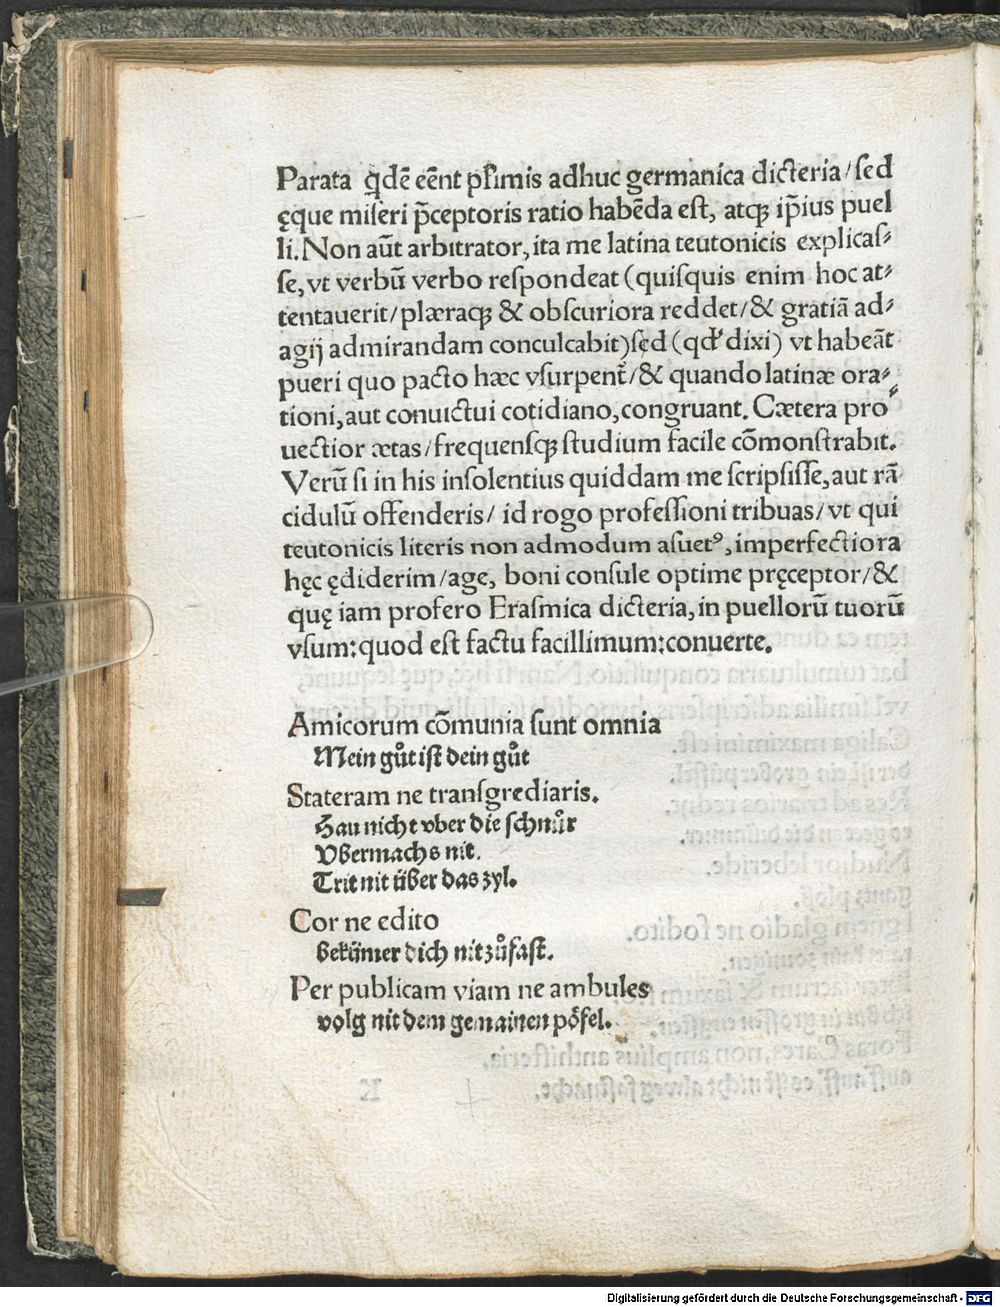 Parata q̃dẽ eẽnt pſimis adhuc germanica dicteria/ſed
ęque miſeri p̃ceptoris ratio habẽda eſt, atqꝫ ip̃ius puel
li. Non aũt arbitrator, ita me latina teutonicis explicaſ⸗
ſe, vt verbũ verbo reſpondeat (quiſquis enim hoc at⸗
tentauerit/plæraqꝫ & obſcuriora reddet/& gratiã ad⸗
agij admirandam conculcabit) ſęd (qď dixi) vt habeãt
pueri quo pacto hæc vſurpent̃/& quando latinæ ora⸗
tioni, aut conuictui cotidiano, congruant. Cætera pro⸗
uectior ætas/frequensqꝫ ſtudium facile cõmonſtrabit.
Verũ ſi in his inſolentius quiddam me ſcripſiſſe, aut rã
cidulũ offenderis/ id rogo profeſſioni tribuas/vt qui
teutonicis literis non admodum aſuetꝰ, imperfectiora
hęc ędiderim/age, boni conſule optime pręceptor/&
quę iam profero Eraſmica dicteria, in puellorũ tuorũ
vſum: quod eſt factu facillimum: conuerte.
Amicorum cõmunia ſunt omnia
Mein gůt iſt dein gůt
Stateram ne tranſgrediaris.
Hau nicht vber die ſchnůr
Vbermachs nit.
Trit nit über das zyl.
Cor ne edito
bekümer dich nit zůfaſt.
Per publicam viam ne ambules
volg nit dem gemainen pöfel.
Digitalisierung gefördert durch die Deutsche Forschungsgemeinschaft - DFG